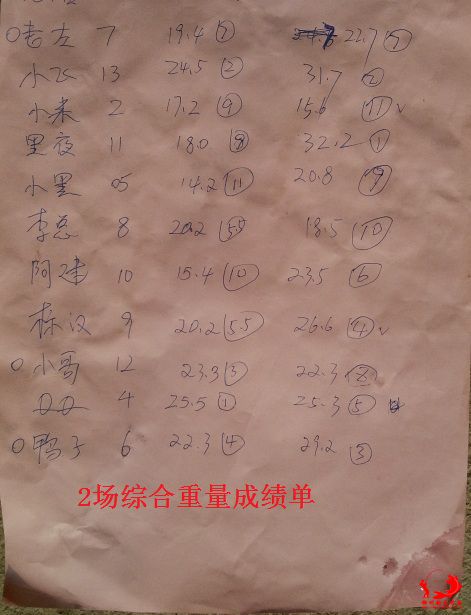 老左 7 19.4 ⑦ 22.7 ⑦
小飞 13 24.5 ② 31.7 ②
小来 2 17.2 ⑨ 15.6 ⑪ √
黑夜 11 18.0 ⑧ 32.2 ①
小黑 05 14.2 ⑪ 20.8 ⑨
李总 8 20.2 5.5 18.5 ⑩
阿建 10 15.4 ⑩ 23.5 ⑥
栋汉 9 20.2 5.5 26.6 ④ √
小哥 12 23.3 ③ 22.3 ⑧
Q Q 4 25.5 ① 25.3 ⑤
鸭子 6 22.3 ④ 29.2 ③
2场综合重量成绩单